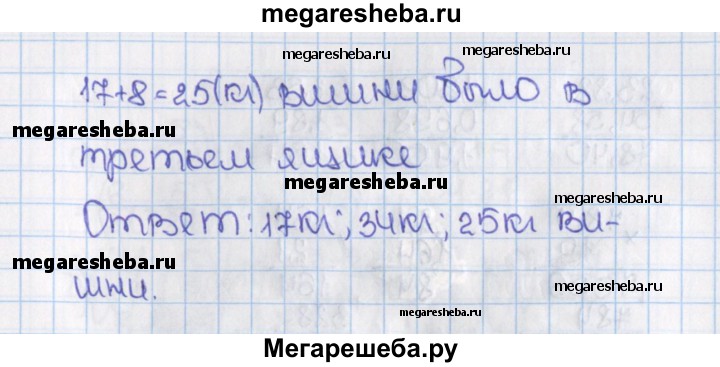 megaresheba.ru
megaresheba.ru
megaresheba.ru
17+8=25(кг) вишни было в
megaresheba.ru
третьем ящике
megaresheba.ru
megaresheba.ru
Ответ: 17кг; 34кг; 25кг ви-
megaresheba.ru
megaresheba.ru
шни.
Мегарешеба.ру